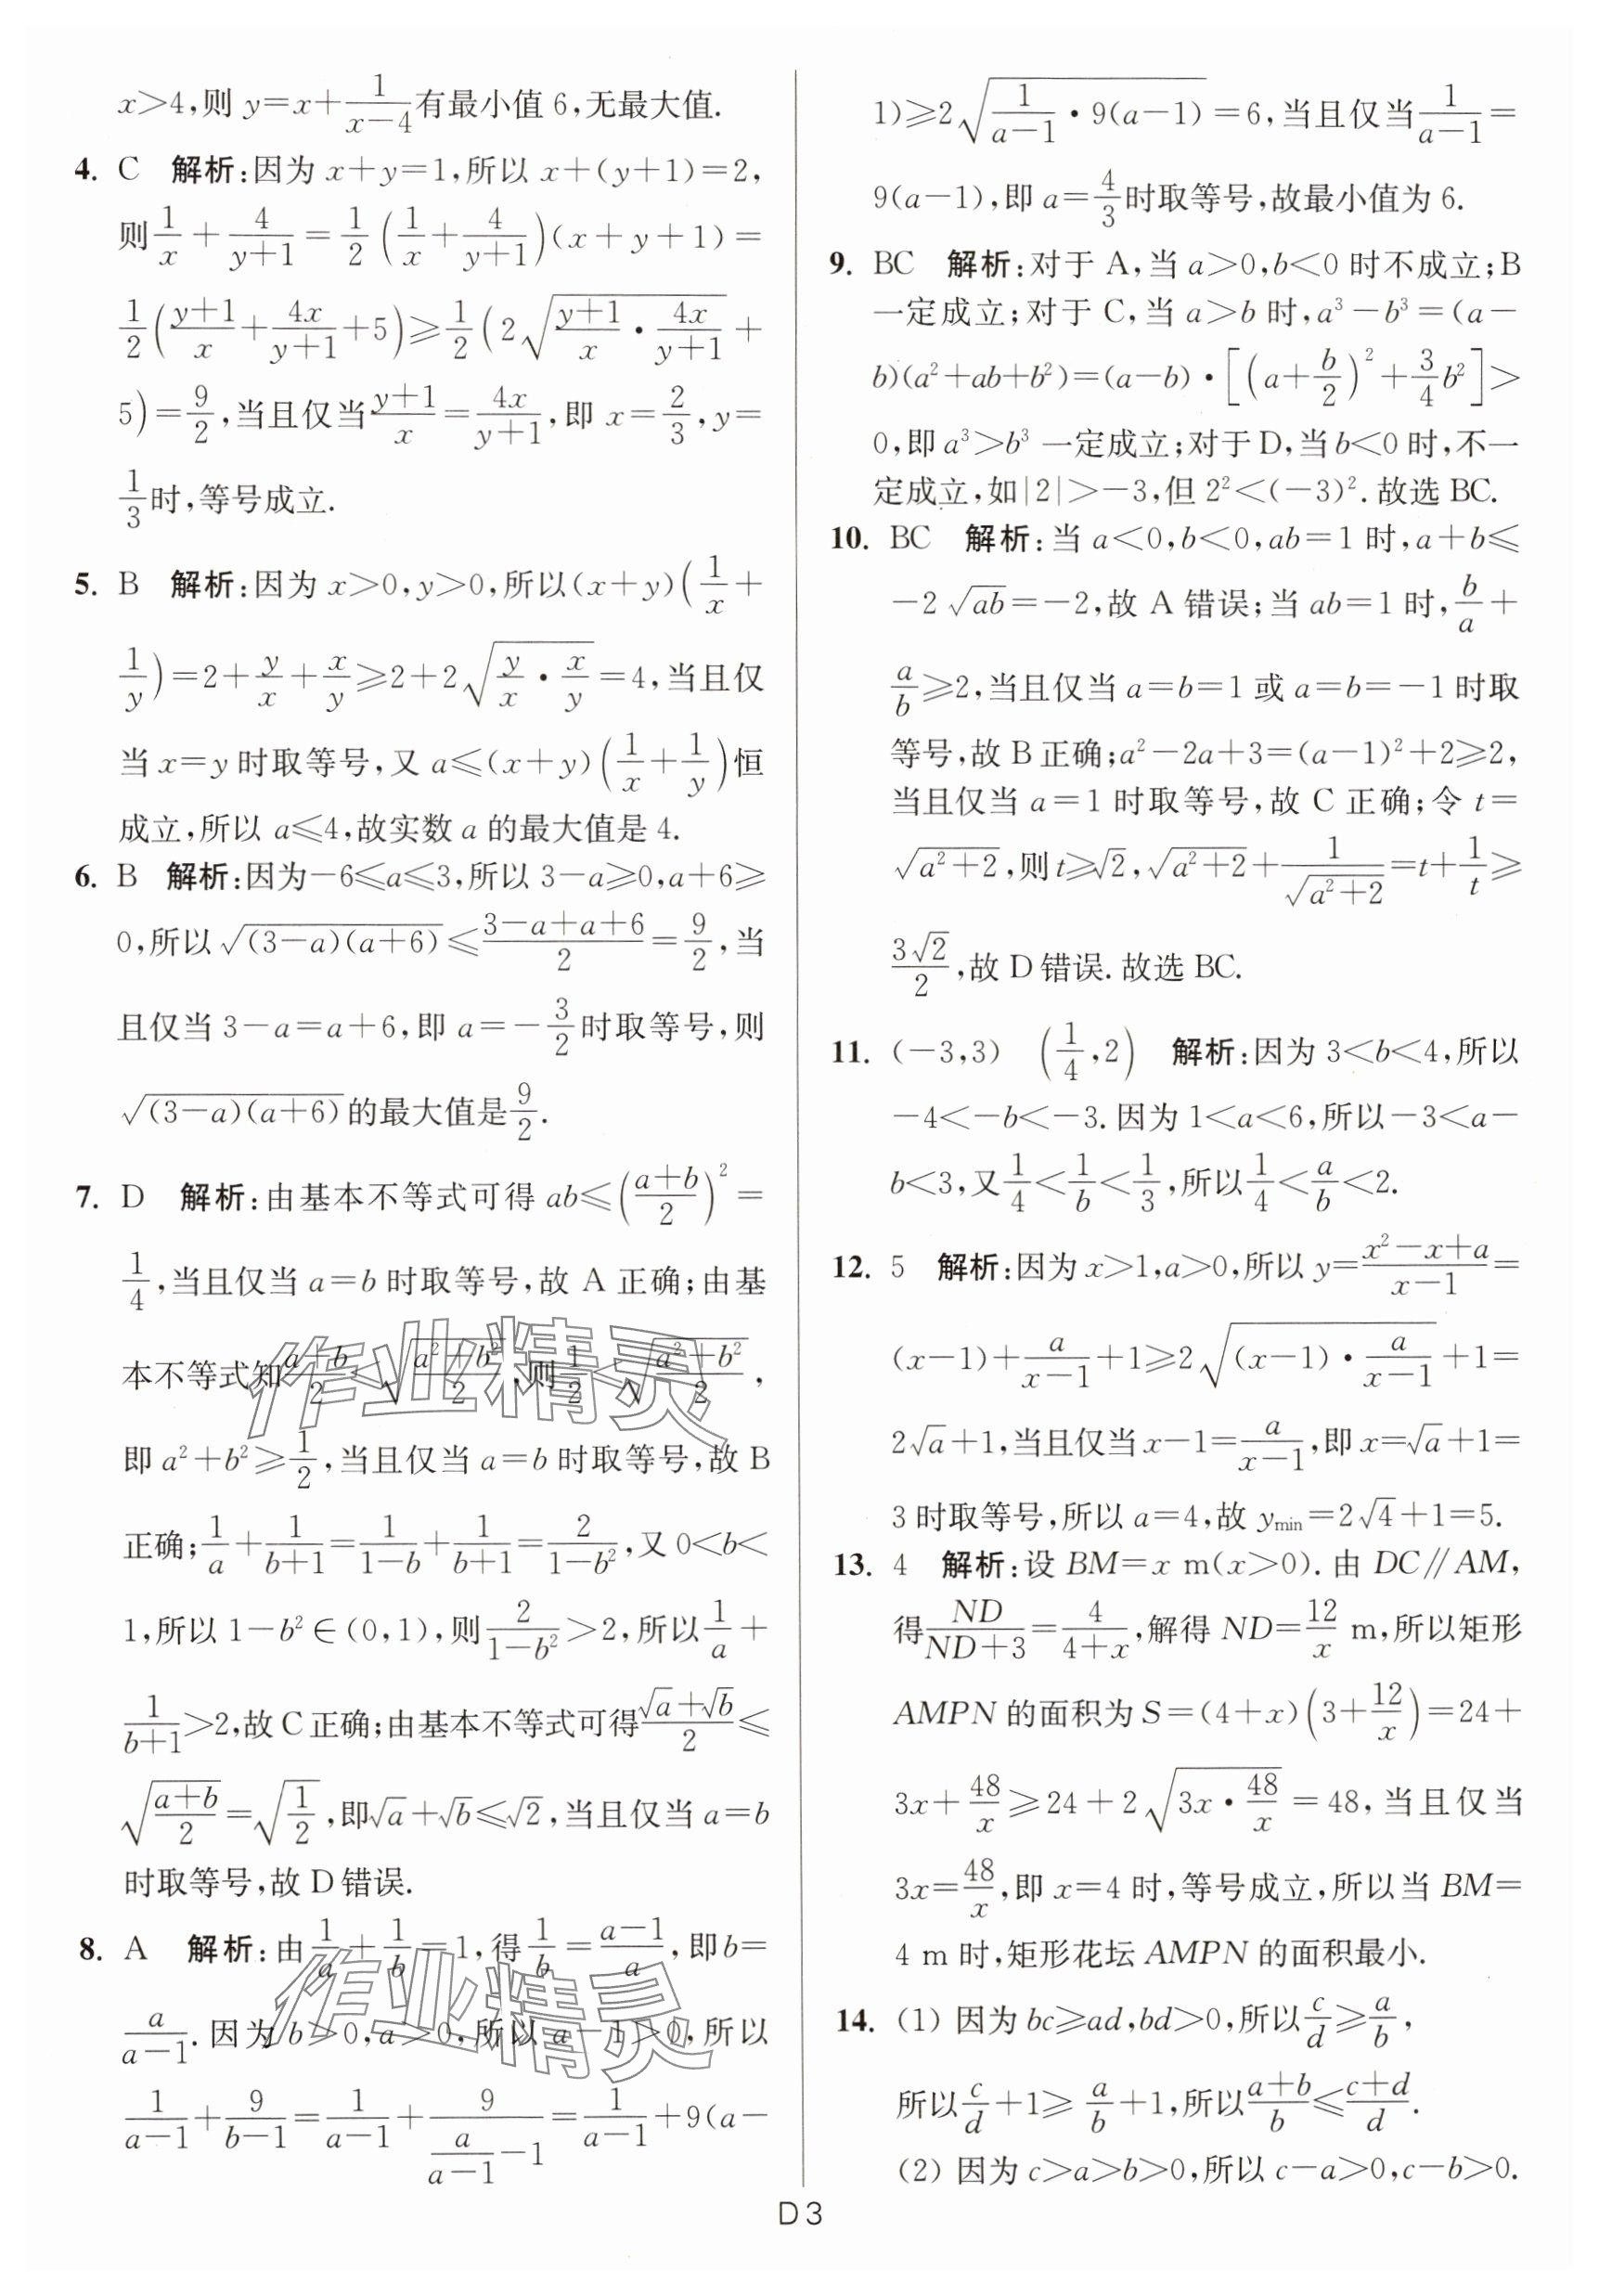 x>4,则 y=x+\frac{1}{x-4}有最小值 6,无最大值.
4. C 解析:因为 x+y=1,所以 x+(y+1)=2,
则\frac{1}{x}+\frac{4}{y+1}=\frac{1}{2}(\frac{1}{x}+\frac{4}{y+1})(x+y+1)=
\frac{1}{2}(\frac{y+1}{x}+\frac{4x}{y+1}+5)≥\frac{1}{2}(2\sqrt{\frac{y+1}{x}·\frac{4x}{y+1}}+
5)=\frac{9}{2},当且仅当\frac{y+1}{x}=\frac{4x}{y+1},即 x=\frac{2}{3},y=
\frac{1}{3}时,等号成立.
5. B 解析:因为 x>0,y>0,所以(x+y)(\frac{1}{x}+
\frac{1}{y})=2+\frac{y}{x}+\frac{x}{y}≥2+2\sqrt{\frac{y}{x}·\frac{x}{y}}=4,当且仅
当 x=y 时取等号,又 a≤(x+y)(\frac{1}{x}+\frac{1}{y})恒
成立,所以 a≤4,故实数 a 的最大值是 4.
6. B 解析:因为-6≤a≤3,所以 3-a≥0,a+6≥
0,所以\sqrt{(3-a)(a+6)}≤\frac{3-a+a+6}{2}=\frac{9}{2},当
且仅当 3-a=a+6,即 a=-\frac{3}{2}时取等号,则
\sqrt{(3-a)(a+6)}的最大值是\frac{9}{2}.
7. D 解析:由基本不等式可得 ab≤(\frac{a+b}{2})^2=
\frac{1}{4},当且仅当 a=b 时取等号,故 A 正确;由基
本不等式知\frac{a+b}{2}≤\sqrt{\frac{a^2+b^2}{2}},则\frac{1}{2}≤\sqrt{\frac{a^2+b^2}{2}},
即 a^2+b^2≥\frac{1}{2},当且仅当 a=b 时取等号,故 B
正确;\frac{1}{a}+\frac{1}{b+1}=\frac{1}{1-b}+\frac{1}{b+1}=\frac{2}{1-b^2},又 0<b<
1,所以 1-b^2∈(0,1),则\frac{2}{1-b^2}>2,所以\frac{1}{a}+
\frac{1}{b+1}>2,故 C 正确;由基本不等式可得\frac{\sqrt{a}+\sqrt{b}}{2}≤
\sqrt{\frac{a+b}{2}}=\sqrt{\frac{1}{2}},即\sqrt{a}+\sqrt{b}≤\sqrt{2},当且仅当 a=b
时取等号,故 D 错误.
8. A 解析:由\frac{1}{a}+\frac{1}{b}=1,得\frac{1}{b}=\frac{a-1}{a},即b=
\frac{a}{a-1}.因为 b>0,a>0,所以 a-1>0,所以
\frac{1}{a-1}+\frac{9}{b-1}=\frac{1}{a-1}+\frac{9}{\frac{a}{a-1}-1}=\frac{1}{a-1}+9(a-
1)≥2\sqrt{\frac{1}{a-1}·9(a-1)}=6,当且仅当\frac{1}{a-1}=
9(a-1),即 a=\frac{4}{3}时取等号,故最小值为 6.
9. BC 解析:对于 A,当 a>0,b<0 时不成立;B
一定成立;对于 C,当 a>b 时,a^3-b^3=(a-
b)(a^2+ab+b^2)=(a-b)·[(a+\frac{b}{2})^2+\frac{3}{4}b^2]>
0,即 a^3>b^3 一定成立;对于 D,当 b<0 时,不一
定成立,如|2|>-3,但 2^2<(-3)^2.故选 BC.
10. BC 解析:当 a<0,b<0,ab=1 时,a+b≤
-2\sqrt{ab}=-2,故 A 错误;当 ab=1 时,\frac{b}{a}+
\frac{a}{b}≥2,当且仅当 a=b=1 或 a=b=-1 时取
等号,故 B 正确;a^2-2a+3=(a-1)^2+2≥2,
当且仅当 a=1 时取等号,故 C 正确;令 t=
\sqrt{a^2+2},则 t≥\sqrt{2},\sqrt{a^2+2}+\frac{1}{\sqrt{a^2+2}}=t+\frac{1}{t}≥
\frac{3\sqrt{2}}{2},故 D 错误.故选 BC.
11. (-3,3) (\frac{1}{4},2) 解析:因为 3<b<4,所以
-4<-b<-3.因为 1<a<6,所以-3<a-
b<3,又\frac{1}{4}<\frac{1}{b}<\frac{1}{3},所以\frac{1}{4}<\frac{a}{b}<2.
12. 5 解析:因为 x>1,a>0,所以 y=\frac{x^2-x+a}{x-1}=
(x-1)+\frac{a}{x-1}+1≥2\sqrt{(x-1)·\frac{a}{x-1}}+1=
2\sqrt{a}+1,当且仅当 x-1=\frac{a}{x-1},即 x=\sqrt{a}+1=
3 时取等号,所以 a=4,故 y_{min}=2\sqrt{4}+1=5.
13. 4 解析:设 BM=x m(x>0).由 DC∥AM,
得\frac{ND}{ND+3}=\frac{4}{4+x},解得 ND=\frac{12}{x} m,所以矩形
AMPN 的面积为 S=(4+x)(3+\frac{12}{x})=24+
3x+\frac{48}{x}≥24+2\sqrt{3x·\frac{48}{x}}=48,当且仅当
3x=\frac{48}{x},即 x=4 时,等号成立,所以当 BM=
4 m 时,矩形花坛 AMPN 的面积最小.
14. (1) 因为 bc≥ad,bd>0,所以\frac{c}{d}≥\frac{a}{b},
所以\frac{c}{d}+1≥\frac{a}{b}+1,所以\frac{a+b}{b}≤\frac{c+d}{d}.
(2) 因为 c>a>b>0,所以 c-a>0,c-b>0.
D3
作业精灵
作业精灵